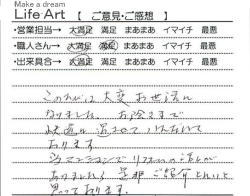 Make a dream
Life Art 【 ご意見・ご感想 】
・営業担当→ 大満足 満足 まあまあ イマイチ 最悪
・職人さん→ 大満足 満足 まあまあ イマイチ 最悪
・出来具合→ 大満足 満足 まあまあ イマイチ 最悪
このたびは 大変 お世話に
なりました。おかげさまで
快適に 過ごさせて いただいて
おります。
当マンションで リフォームの話しが
ありましたら 是非 ご紹介 したいと
思っております。